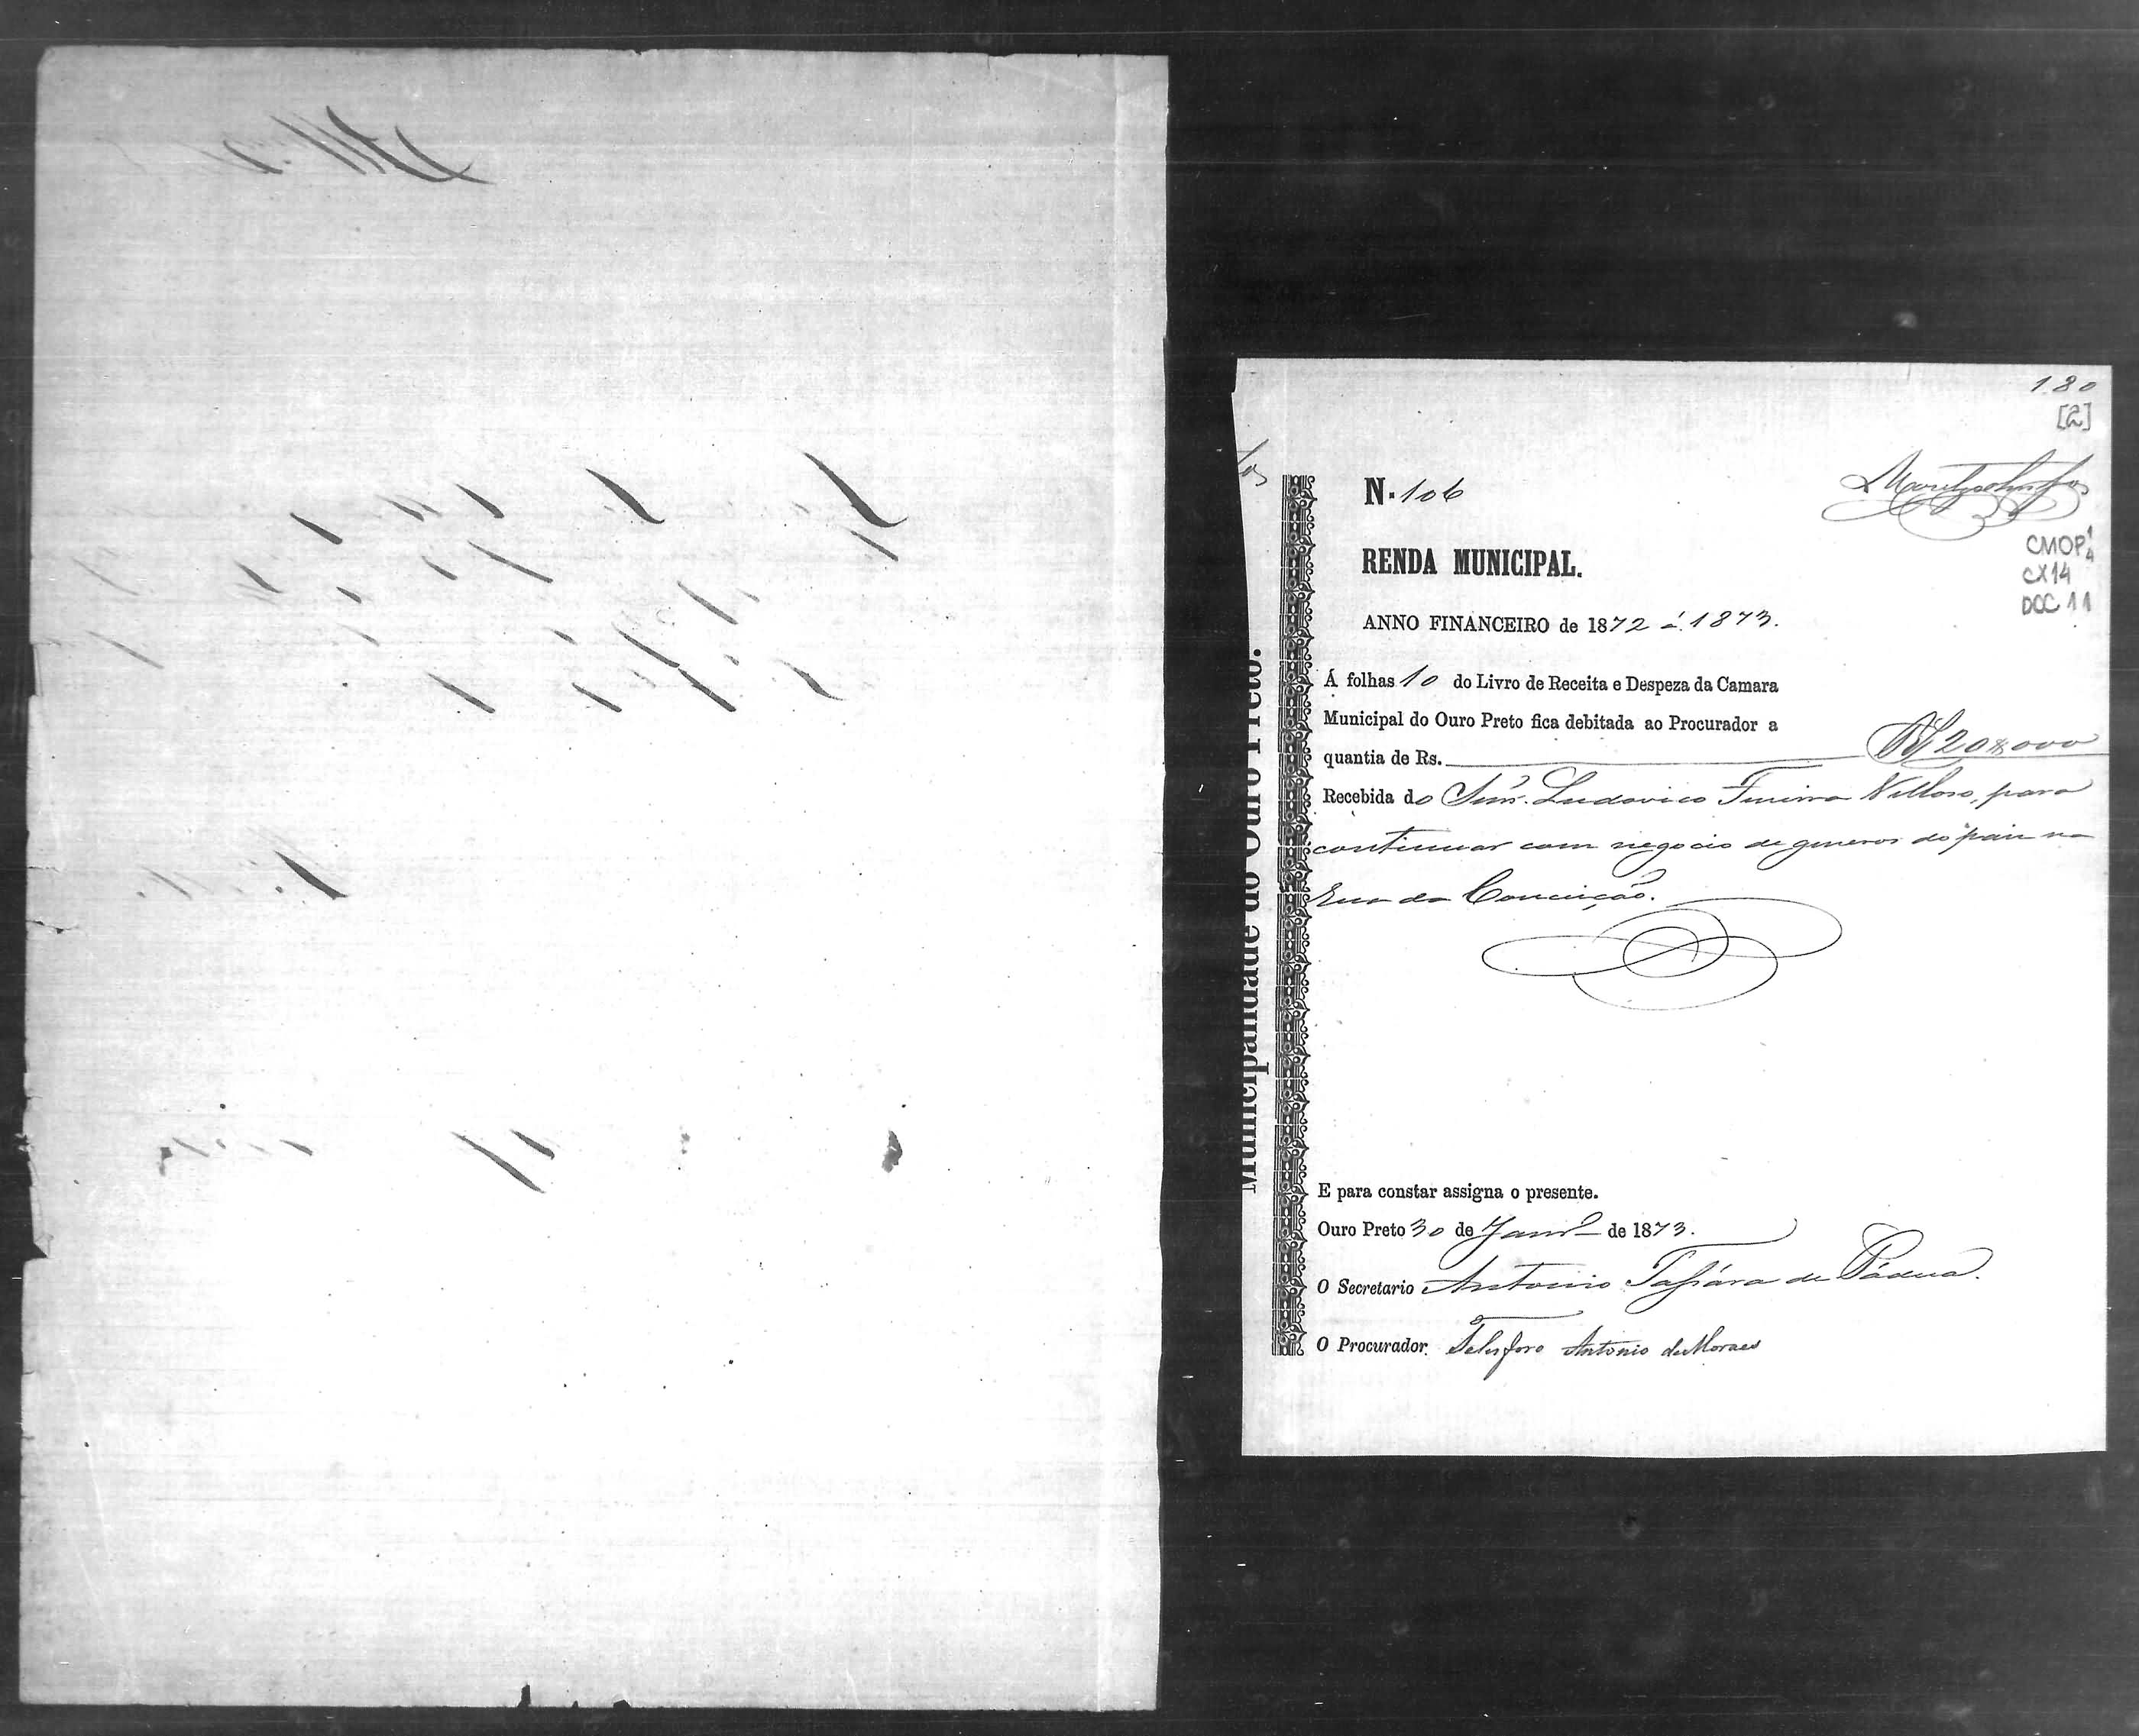 180
[2]
N. 106
CMOP 1/4
CX14
DOC 11
RENDA MUNICIPAL.
ANNO FINANCEIRO de 1872 á 1873.
Á folhas 10 do Livro de Receita e Despeza da Camara
Municipal do Ouro Preto fica debitada ao Procurador a
quantia de Rs. 20$000
Recebida do Snr. Ludovico Ferreira Velloso, para
continuar com negocio de generos do paiz na
Rua da Conceição.
E para constar assigna o presente.
Ouro Preto 30 de Janr.º de 1873.
O Secretario Antonio Tassára de Pádua.
O Procurador. Telesforo Antonio de Moraes
Municipalidade do Ouro Preto.